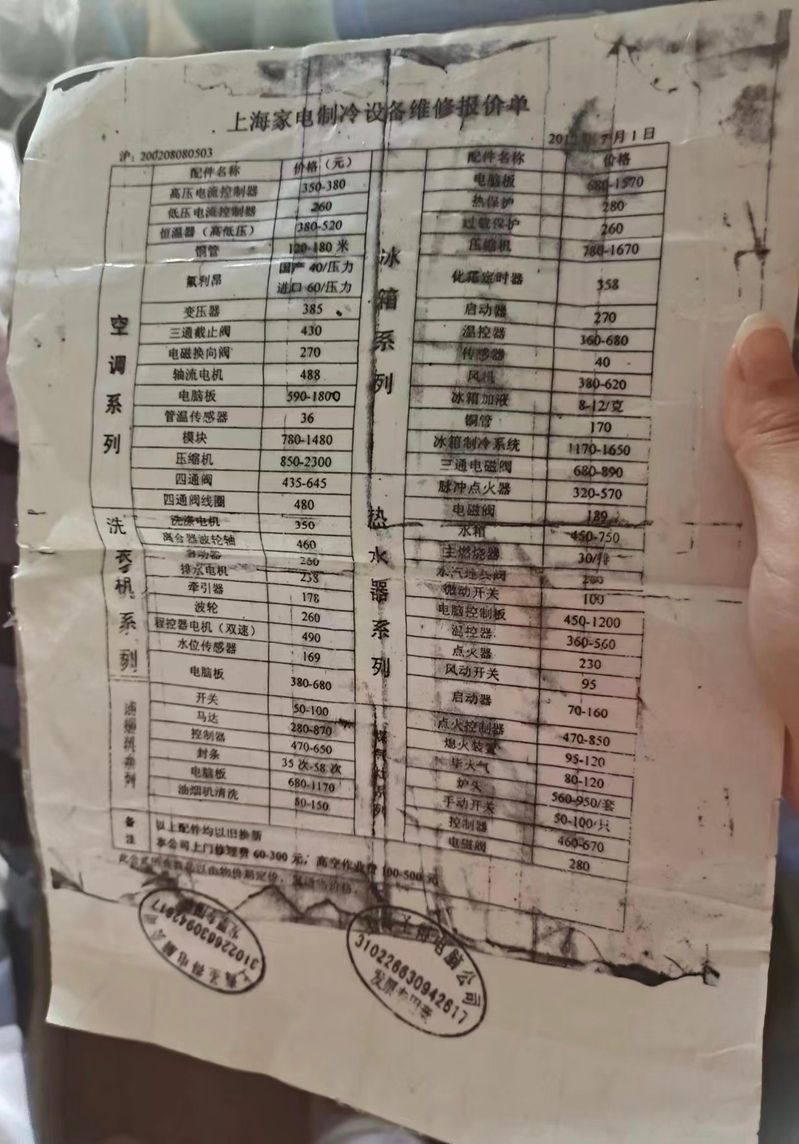 上海家电制冷设备维修报价单
沪：200208080503
月1日
空调系列
配件名称 价格（元）
高压电流控制器 350-380
低压电流控制器 260
恒温器（高低压） 380-520
铜管 120-180 米
氟利昂 国产 40/压力
进口 60/压力
变压器 385
三通截止阀 430
电磁换向阀 270
轴流电机 488
电脑板 590-1800
管温传感器 36
模块 780-1480
压缩机 850-2300
四通阀 435-645
四通阀线圈 480
洗衣机系列
洗涤电机 350
离合器波轮轴 460
排水电机 238
牵引器 178
波轮 260
程控器电机（双速） 490
水位传感器 169
电脑板 380-680
油烟机系列
开关 50-100
马达 280-870
控制器 470-650
封条 35 次-58 次
电脑板 680-1170
油烟机清洗 80-150
冰箱系列
配件名称 价格
电脑板 680-1570
热保护 280
过载保护 260
压缩机 780-1670
化霜定时器 358
启动器 270
温控器 360-680
传感器 40
风机 380-620
冰箱加液 8-12/克
铜管 170
冰箱制冷系统 1170-1650
三通电磁阀 680-890
热水器系列
脉冲点火器 320-570
电磁阀 189
水箱 450-750
主燃烧器 30/排
微动开关 100
电脑控制板 450-1200
温控器 360-560
点火器 230
风动开关 95
启动器 70-160
煤气灶系列
点火控制器 470-850
熄火装置 95-120
炉头 560-950/套
手动开关 50-100/只
控制器 460-670
电磁阀 280
备注
以上配件均以旧换新
本公司上门修理费 60-300 元，高空作业费 100-500 元
310226630942617
发票专用章
电脑公司
310226630942617
发票专用章